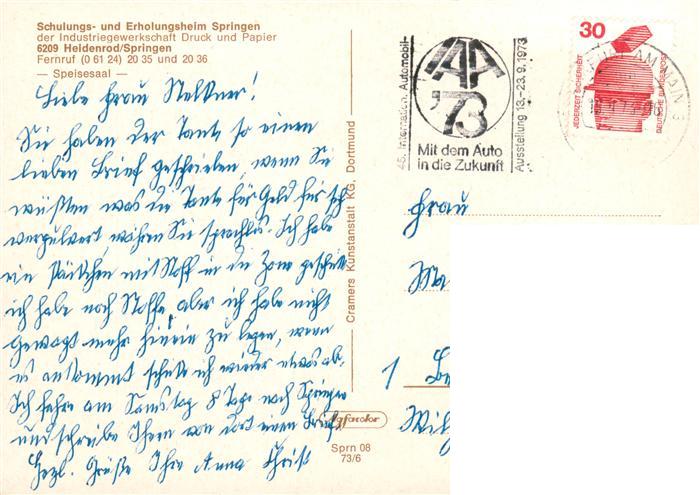 Schulungs- und Erholungsheim Springen
der Industriegewerkschaft Druck und Papier
6209 Heidenrod/Springen
Fernruf (0 61 24) 20 35 und 20 36
— Speisesaal —
Liebe Frau Stelkner!
Sie haben der Tante so einen
lieben Brief geschrieben, wenn Sie
wüßten was die Tante für Geld für sich
verpulvert, wären Sie sprachlos. Ich habe
ein Päckchen mit Stoff in die Zone geschickt
ich habe noch Stoffe, aber ich habe nicht
gewagt mehr hinein zu legen, wenn
es ankommt schicke ich wieder etwas ab.
Ich fahre am Samstag 8 Tage nach Springen
und schreibe Ihnen von dort einen Brief.
Herzl. Grüße Ihre Anna Christ
Cramers Kunstanstalt KG, Dortmund
Agfacolor
Sprn 08
73/6
45. Internation. Automobil-
IAA
'73
Mit dem Auto
in die Zukunft
Ausstellung 13.–23.9.1973
30
JEDERZEIT SICHERHEIT
DEUTSCHE BUNDESPOST
AM MAIN
Frau
1